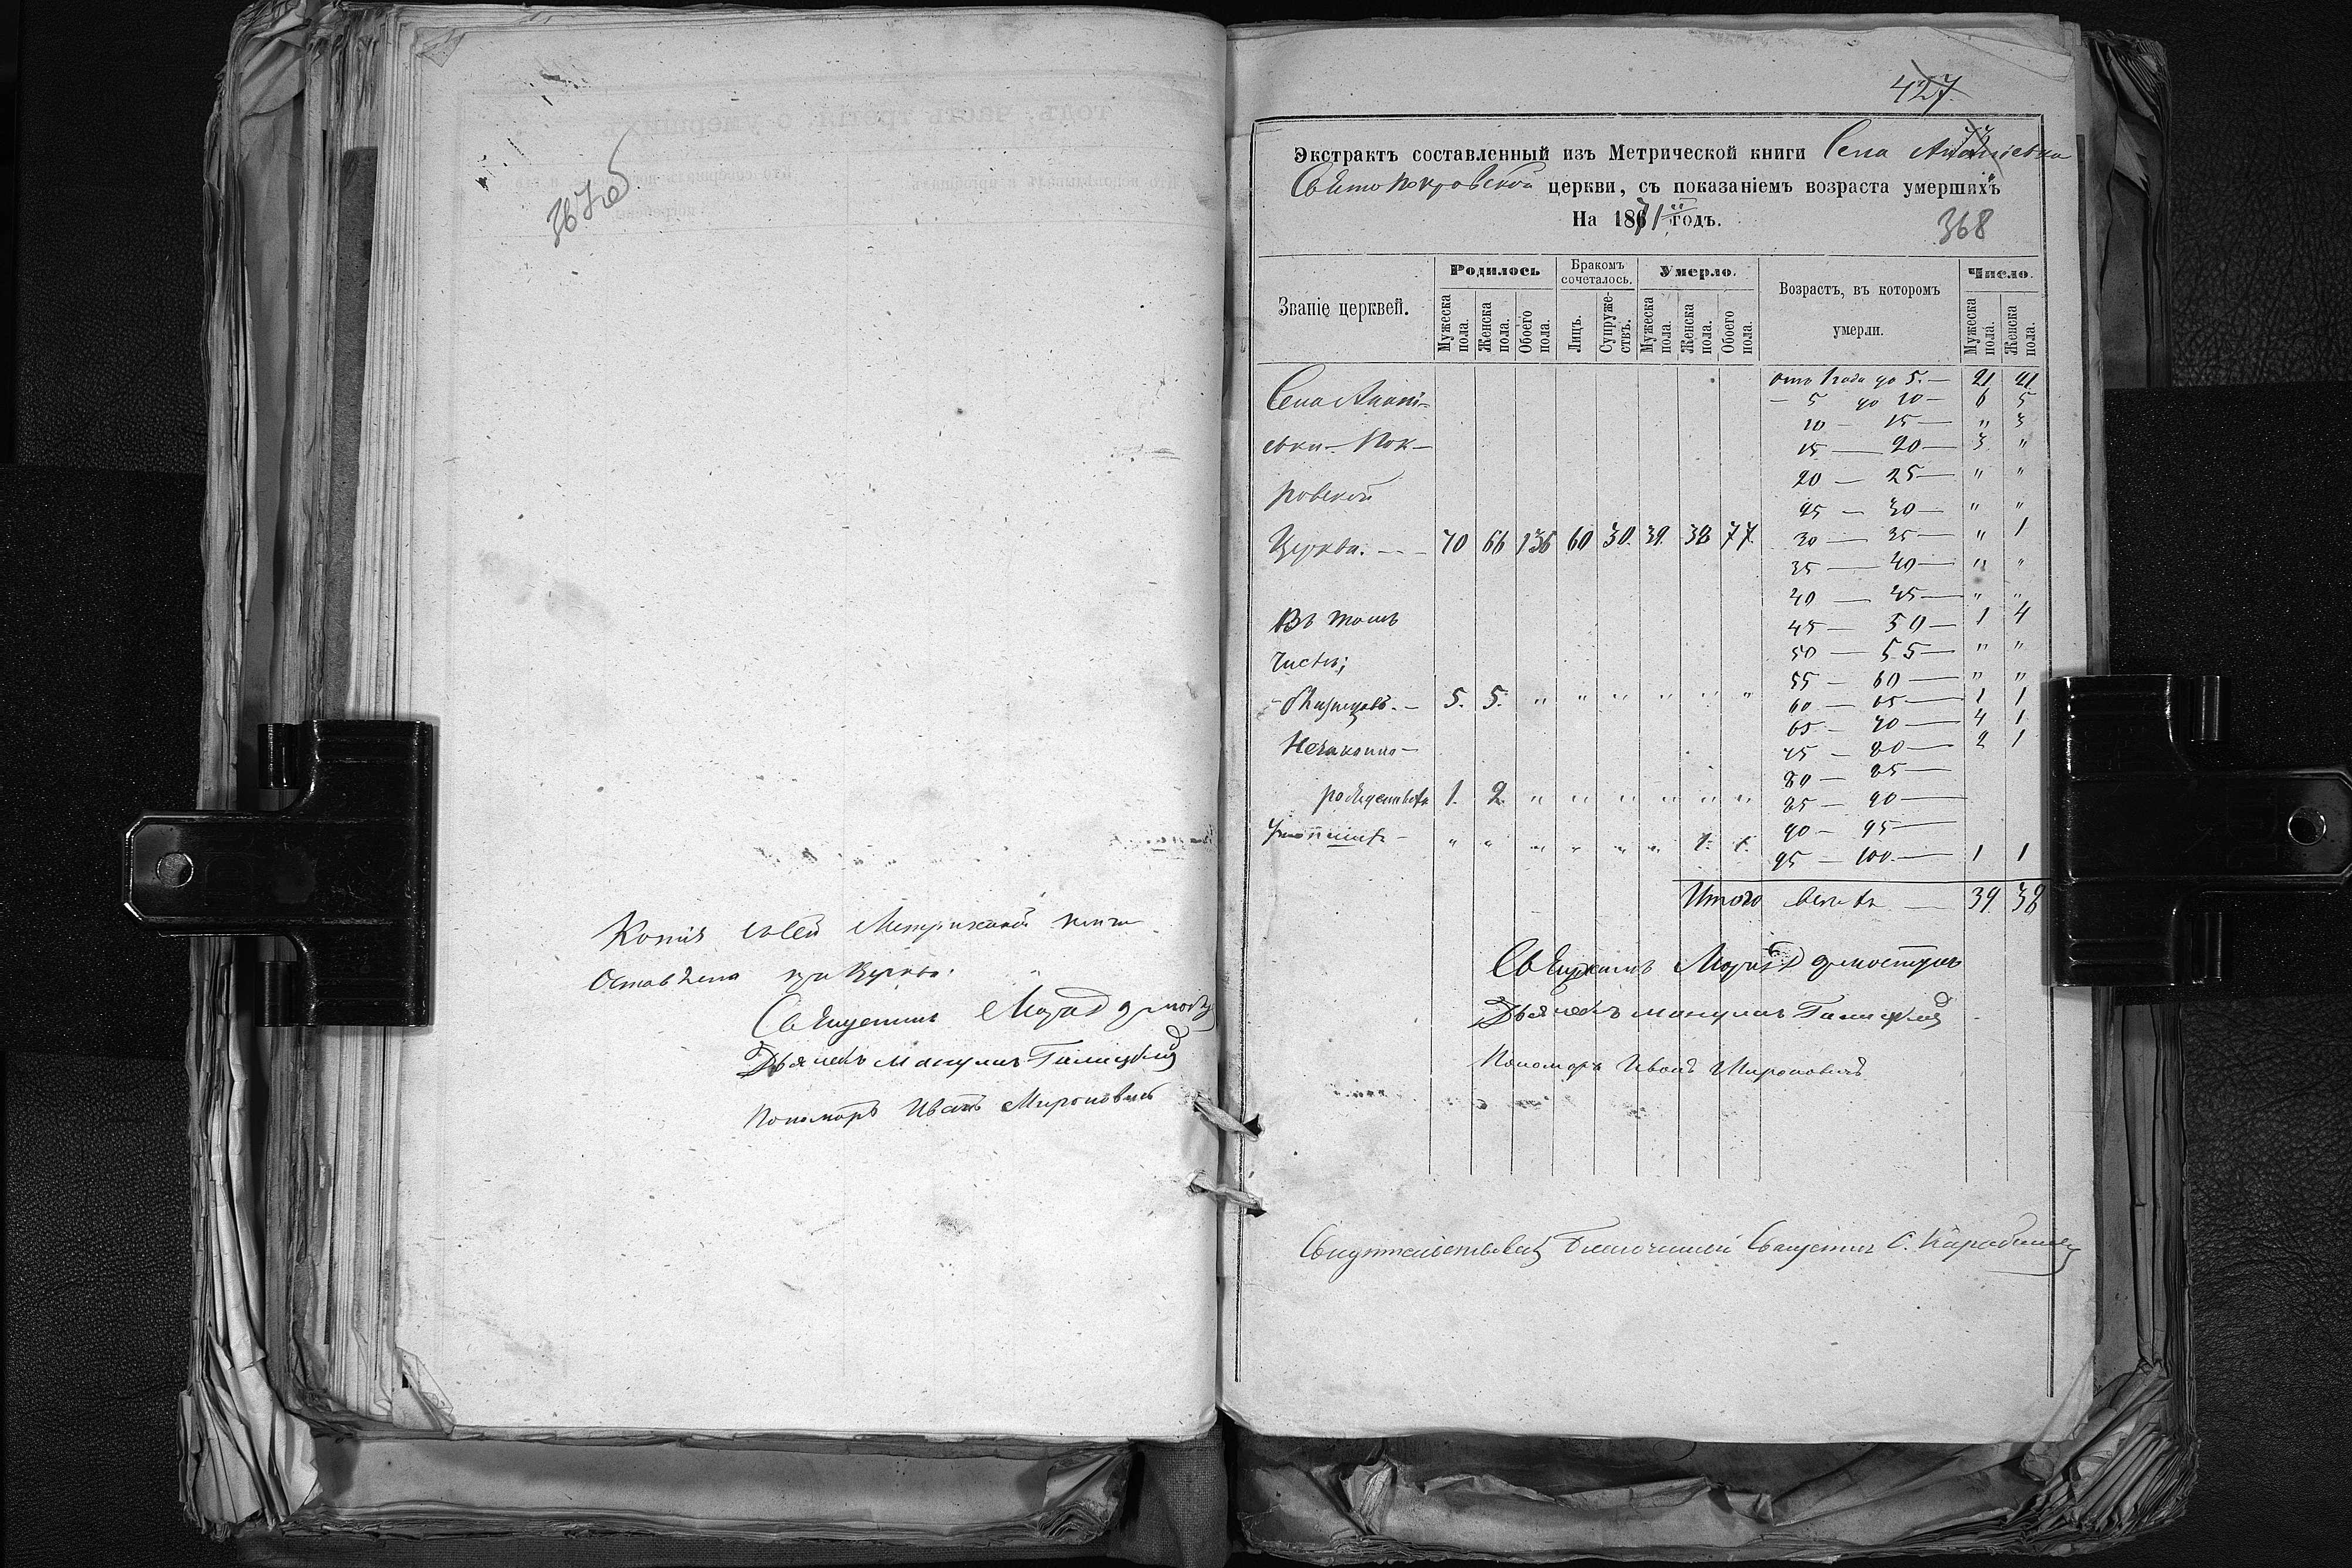 367 об
Копія съ сей Метрической книги
Оставлена при Церкви.
Священникъ
Дьячекъ Мануилъ Галицкій
Пономарь Иванъ Мироновичъ
427
Экстрактъ составленный изъ Метрической книги Села Ананіевки
Свято Покровской церкви, съ показаніемъ возраста умершихъ
На 1871 годъ.
368
Званіе церквей.
Родилось
Бракомъ сочеталось.
Умерло.
Возрастъ, въ которомъ умерли.
Число.
Мужеска пола.
Женска пола.
Обоего пола.
Лицъ.
Супружествъ.
Мужеска пола.
Женска пола.
Обоего пола.
Мужеска пола.
Женска пола.
Села Анані-
евки Пок-
ровской
Церкви. 70 66 136 60 30. 39. 38 77.
Въ томъ
числѣ;
Близнецовъ. 5. 5. " " " " " "
Незаконно-
рожденныхъ 1. 2. " " " " " "
" " " " " " 1. 1.
отъ 1 года до 5. — 21 21
— 5 до 10 — 6 5
10 — 15 — " 3
15 — 20 — 3 "
20 — 25 — " "
25 — 30 — " "
30 — 35 — " 1
35 — 40 — " "
40 — 45 — " "
45 — 50 — 1 4
50 — 55 — " "
55 — 60 — " "
60 — 65 — 1 1
65 — 70 — 4 1
75 — 80 — 2 1
80 — 85 —
85 — 90 —
90 — 95 —
95 — 100 — 1 1
Итого всѣхъ — 39 38
Священникъ
Дьячекъ Мануилъ Галицкій
Пономарь Иванъ Мироновичъ
Свидѣтельствовалъ Благочинный Священникъ С.